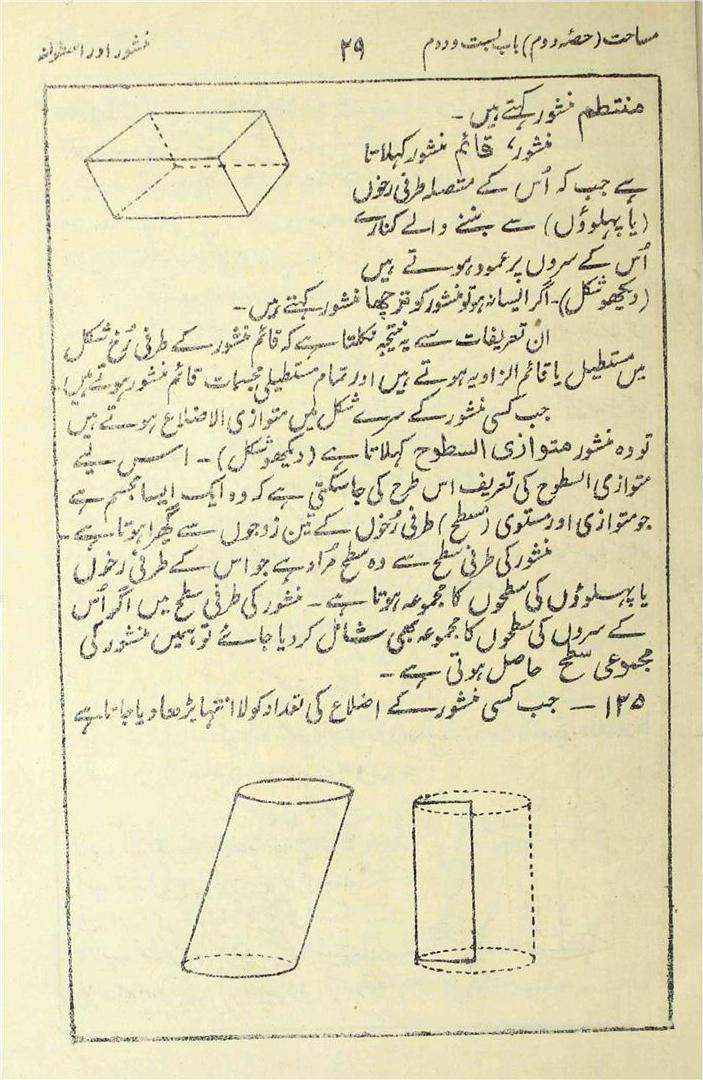 مساحت (حصہ دوم) باب بست و دوم ۲۹ منشور اور اسطوانہ
منتظم منشور کہتے ہیں ۔
منشور، قائم منشور کہلاتا
ہے جب کہ اُس کے متصلہ طرفی رخوں
(یا پہلوؤں) سے بننے والے کنارے
اُس کے سروں پر عمود ہوتے ہیں
(دیکھو شکل)۔ اگر ایسا نہ ہو تو منشور کو ترچھا منشور کہتے ہیں ۔
ان تعریفات سے یہ نتیجہ نکلتا ہے کہ قائم منشور کے طرفی رُخ شکل
میں مستطیل یا قائم الزاویہ ہوتے ہیں اور تمام مستطیلی مجسمات قائم منشور ہوتے ہیں ۔
جب کسی منشور کے سرے شکل میں متوازی الاضلاع ہوتے ہیں
تو وہ منشور متوازی السطوح کہلاتا ہے (دیکھو شکل) ۔ اس لیے
متوازی السطوح کی تعریف اس طرح کی جاسکتی ہے کہ وہ ایک ایسا مجسم ہے
جو متوازی اور مستوی (مسطح) طرفی رُخوں کے تین زوجوں سے گھرا ہوتا ہے ۔
منشور کی طرفی سطح سے وہ سطح مُراد ہے جو اس کے طرفی رخوں
یا پہلوؤں کی سطحوں کا مجموعہ ہوتا ہے ۔ منشور کی طرفی سطح میں اگر اُس
کے سروں کی سطحوں کا مجموعہ بھی شامل کر دیا جائے تو ہمیں منشور کی
مجموعی سطح حاصل ہوتی ہے ۔
۱۲۵ — جب کسی منشور کے اضلاع کی تعداد کو لا انتہا بڑھا دیا جاتا ہے